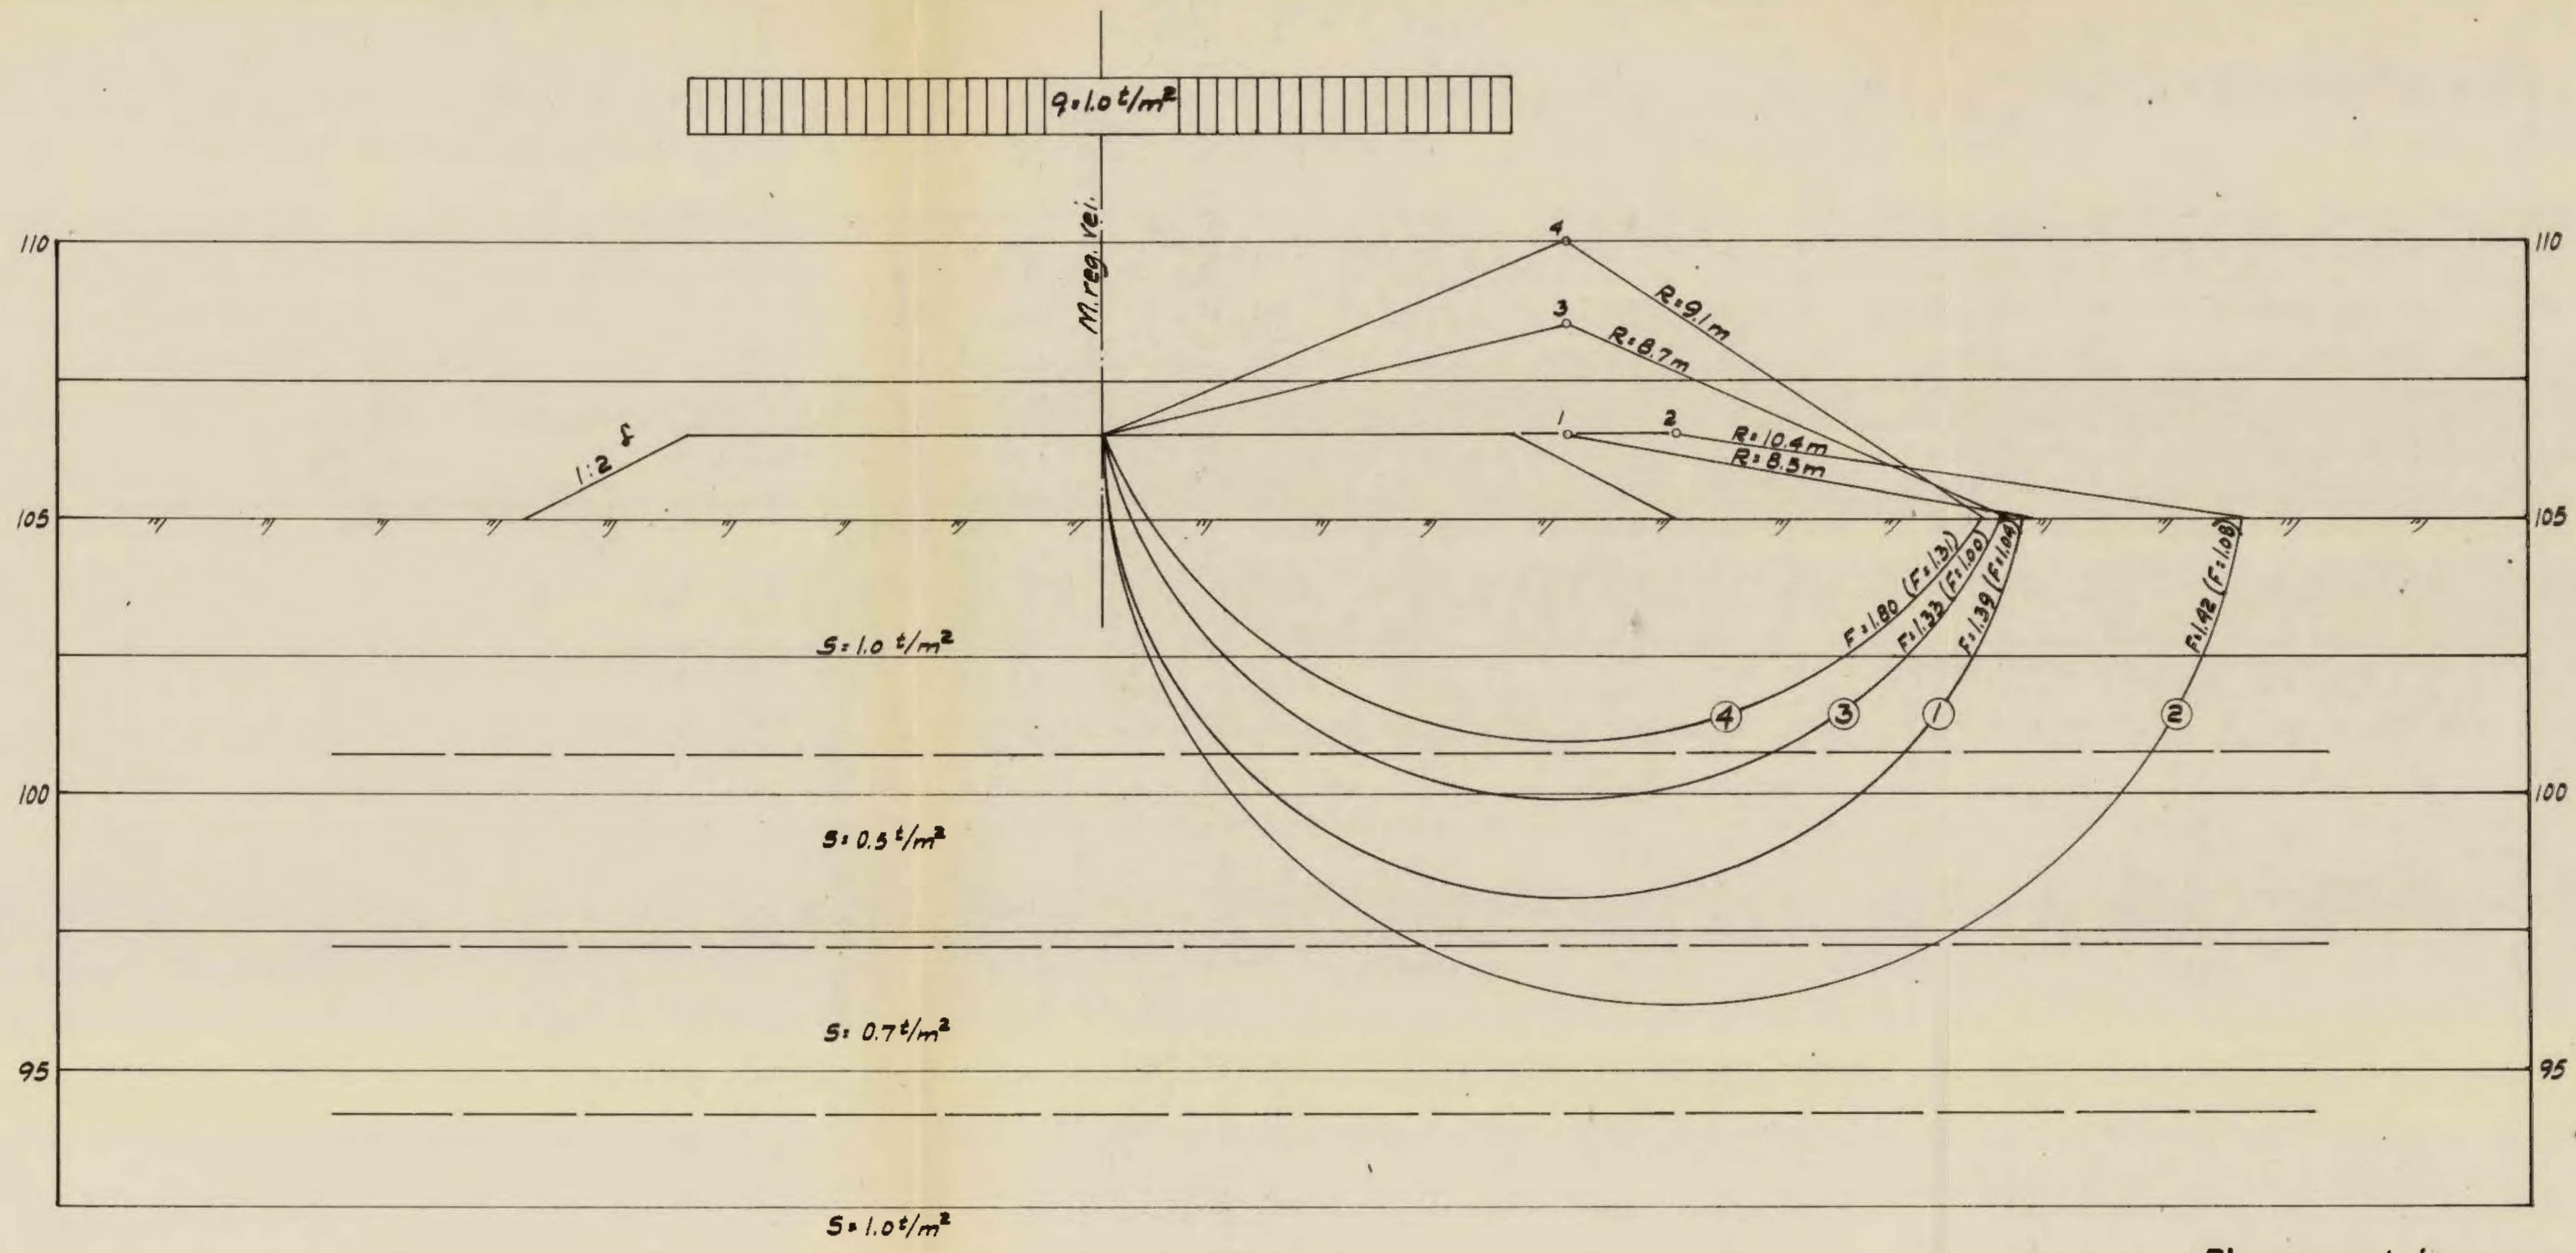 q=1.0 t/m²
M. reg. vei.
110
4
110
R=9.1m
3
R=8.7m
1
2
R=10.4m
R=8.5m
1:2
105
105
F=1.80 (F=1.31)
F=1.33 (F=1.00)
F=1.39 (F=1.04)
F=1.42 (F=1.08)
S=1.0 t/m²
4
3
1
2
100
100
S=0.5 t/m²
S=0.7 t/m²
95
95
S=1.0 t/m²